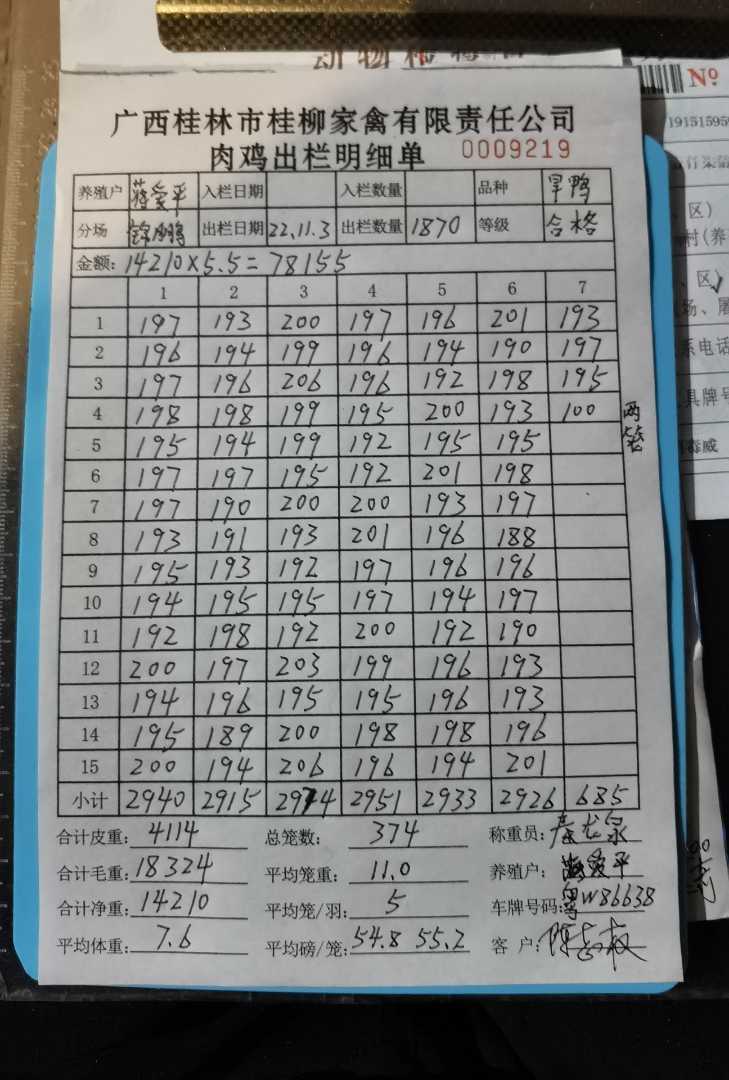 动物
Nº
1915159
广西桂林市桂柳家禽有限责任公司
肉鸡出栏明细单 0009219
养殖户 蒋爱平 入栏日期 入栏数量 品种 旱鸭
分场 出栏日期 22.11.3 出栏数量 1870 等级 合格
金额: 14210×5.5=78155
1 2 3 4 5 6 7
1 197 193 200 197 196 201 193
2 196 194 199 196 194 190 197
3 197 196 206 196 192 198 195
4 198 198 199 195 200 193 100 两笼
5 195 194 199 192 195 195
6 197 197 195 192 201 198
7 197 190 200 200 193 197
8 193 191 193 201 196 188
9 195 193 192 197 196 196
10 194 195 195 197 194 197
11 192 198 192 200 192 190
12 200 197 203 199 196 193
13 194 196 195 195 196 193
14 195 189 200 198 198 196
15 200 194 206 196 194 201
小计 2940 2915 2974 2951 2933 2926 685
合计皮重: 4114 总笼数: 374 称重员: 秦龙泉
合计毛重: 18324 平均笼重: 11.0 养殖户: 蒋爱平
合计净重: 14210 平均笼/羽: 5 车牌号码: 粤W86638
平均体重: 7.6 平均磅/笼: 54.8 55.2 客户:
区)
村(养
、区)
场、屠
系电话
具牌号
威